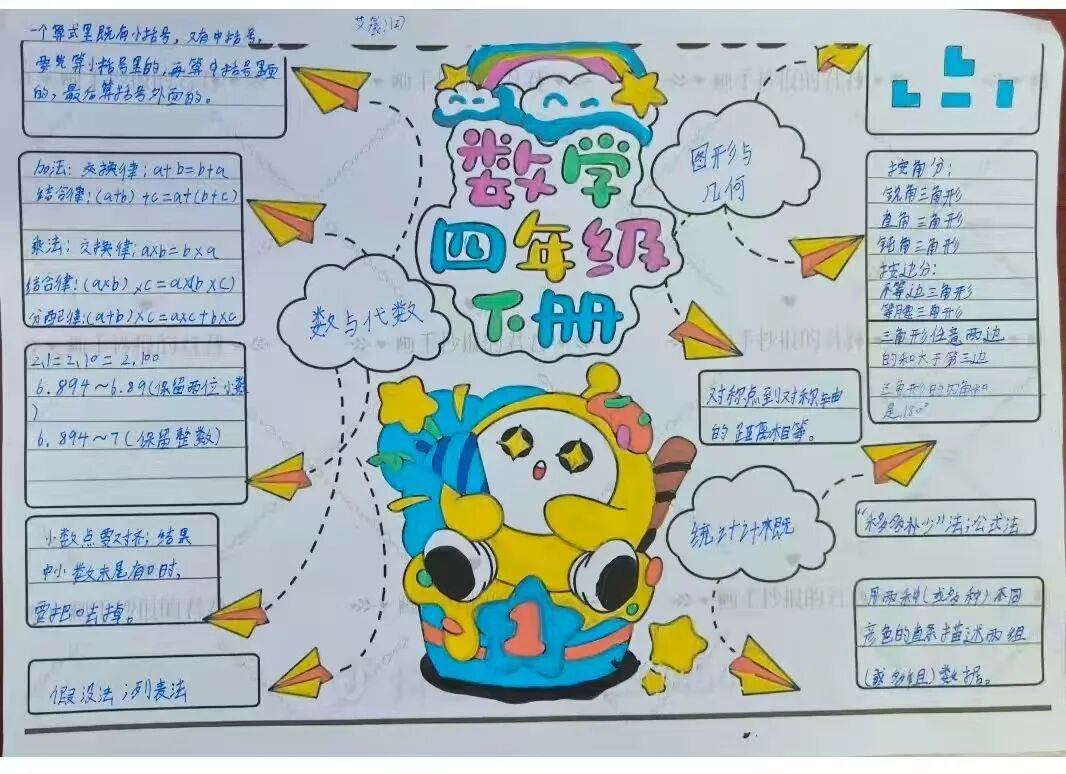 一个算式里既有小括号，又有中括号，
要先算小括号里的，再算中括号里面
的，最后算括号外面的。
加法：交换律：a+b=b+a
结合律：(a+b)+c=a+(b+c)
乘法：交换律：a×b=b×a
结合律：(a×b)×c=a×(b×c)
分配律：(a+b)×c=a×c+b×c
2.1=2.10=2.100
6.894~6.89(保留两位小数
)
6.894~7(保留整数)
小数点要对齐；结果
中小数末尾有0时，
要把0去掉。
假设法；列表法
数学
四年级
下册
数与代数
图形与
几何
统计计概既
1
按角分：
锐角三角形
直角三角形
钝角三角形
按边分：
不等边三角形
等腰三角形
三角形任意两边
的和大于第三边
三角形的内角和
是180°
对称点到对称轴
的距离相等。
“移多补少”法；公式法
用两种(或多种)不同
颜色的直条描述两组
(或多组)数据。